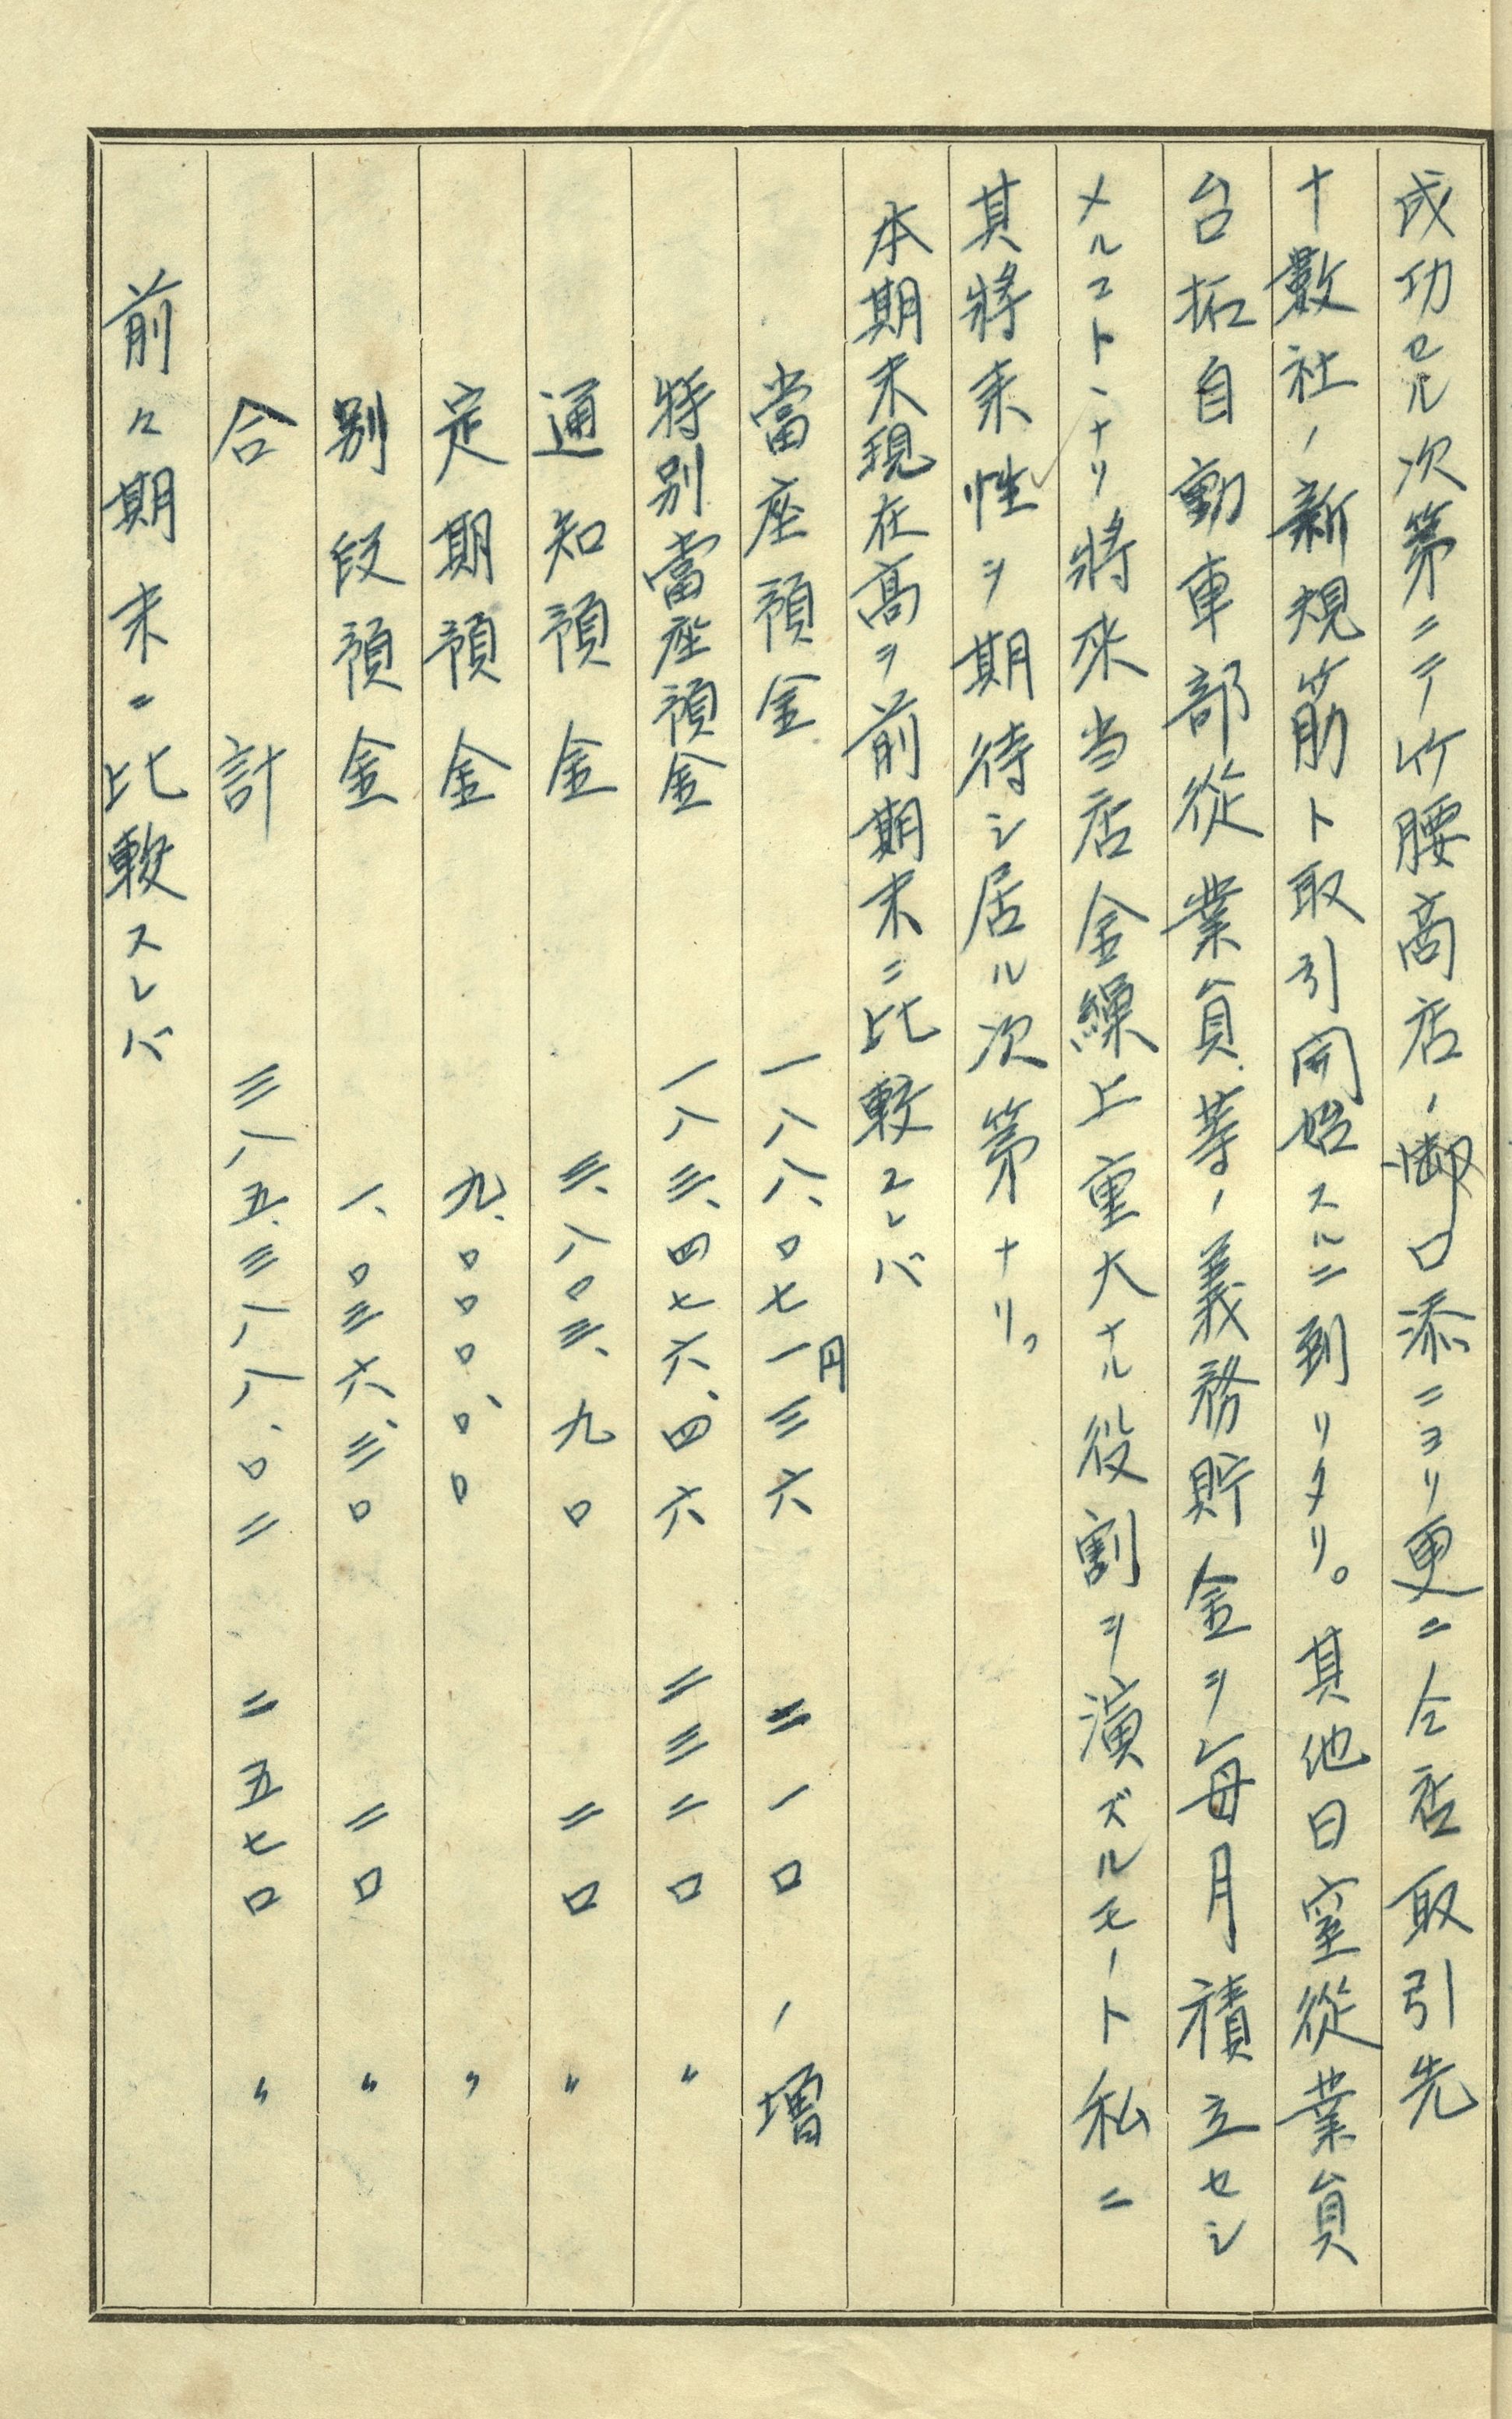 成功セル次第ニテ竹腰商店ノ御口添ニヨリ更ニ仝店取引先
十數社ノ新規筋ト取引開始スルニ到リタリ。其他日窒從業員
台拓自動車部從業員等ノ義務貯金ヲ毎月積立セシ
メルコトヽナリ將來当店金繰上重大ナル役割ヲ演ズルモノト私ニ
其將来性ヲ期待シ居ル次第ナリ。
本期末現在高ヲ前期末ニ比較スレバ
當座預金 一八八、〇七一円三六 二一口 ノ増
特別當座預金 一八三、四七六、四六 二三二口 〃
通知預金 三、八〇三、九〇 二口 〃
定期預金 九、〇〇〇、〇〇 〃
別段預金 一、〇三六、三〇 二口 〃
合計 三八五、三八八、〇二 二五七口 〃
前々期末ニ比較スレバ